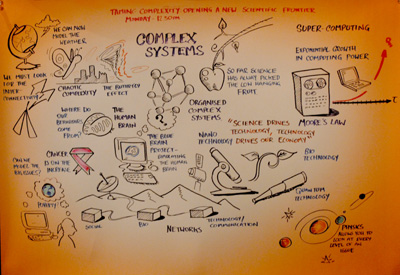 TAMING COMPLEXITY OPENING A NEW SCIENTIFIC FRONTIER
WE CAN NOW
MODEL THE
WEATHER
COMPLEX
SYSTEMS
SUPER-COMPUTING
EXPONENTIAL GROWTH
IN COMPUTING POWER
WE MUST LOOK FOR
THE
INTER-
CONNECTIVITY
CHAOTIC
COMPLEXITY
THE BUTTERFLY
EFFECT
SO FAR SCIENCE
HAS ALWAYS PICKED
THE LOW HANGING
FRUIT
WHERE DO
OUR
BEHAVIOURS
COME
FROM?
THE
HUMAN
BRAIN
?
ORGANISED
COMPLEX
SYSTEMS
"SCIENCE DRIVES
TECHNOLOGY, TECHNOLOGY
DRIVES OUR ECONOMY"
MOORE'S LAW
t
CANCER
IS ON THE
INCREASE
THE BLUE
BRAIN
PROJECT -
THE HUMAN
BRAIN
NANO
TECHNOLOGY
BIO
TECHNOLOGY
CAN WE MODEL
THE
QUANTUM
TECHNOLOGY
SOCIAL
BIO
TECHNOLOGY/
COMMUNICATION
NETWORKS
PHYSICS
ALLOWS YOU TO
LOOK AT EVERY
LEVEL OF AN